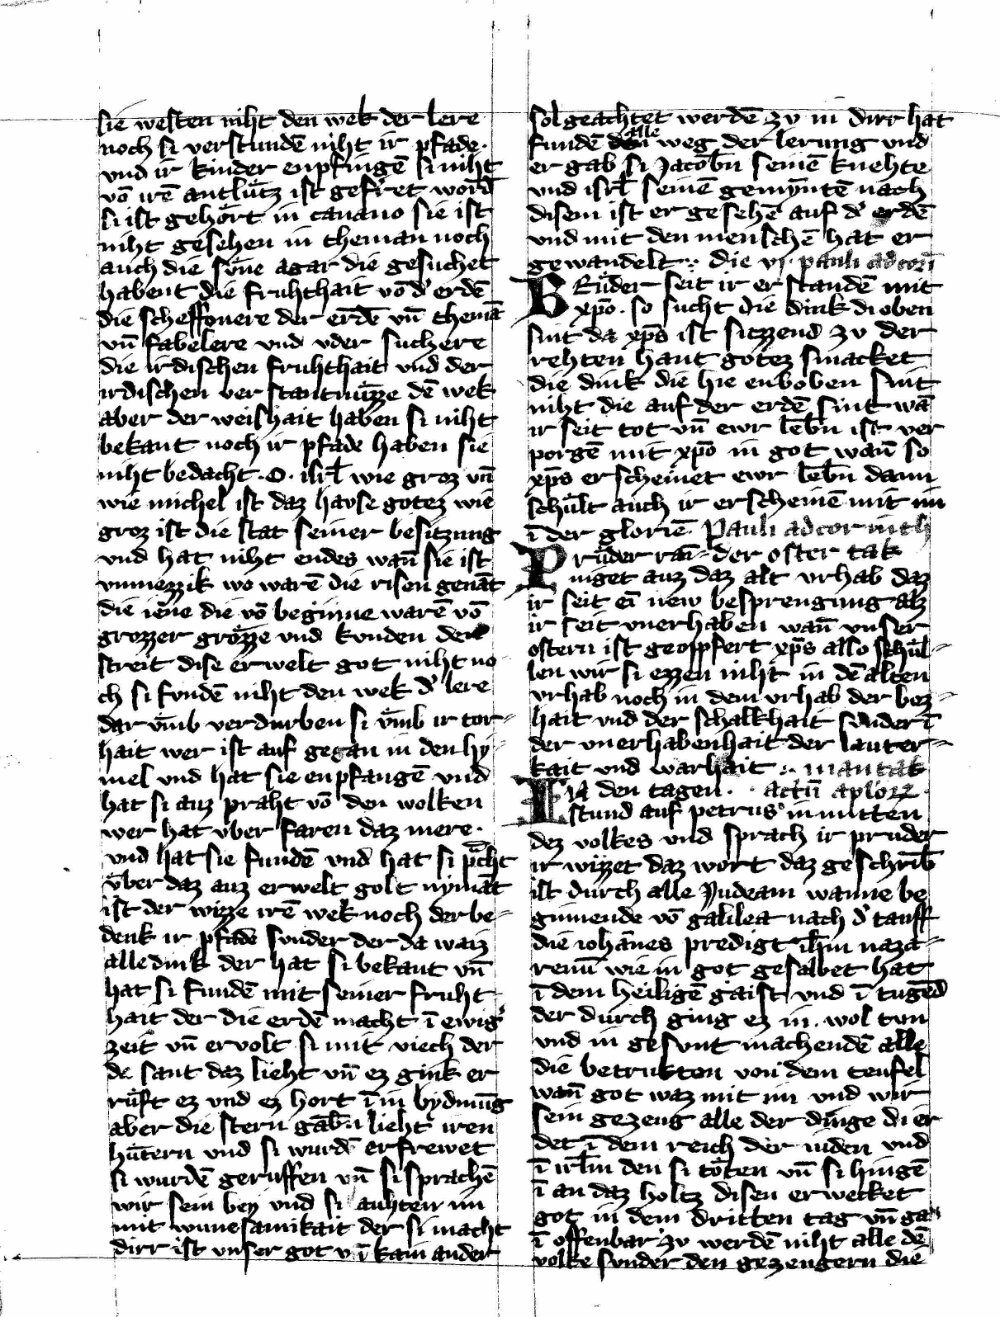 sie westen niht den wek der lere
noch si verstundē niht ir pfade.
vnd ir kinder enpfingē si niht
vō irē antlütz ist gefiret word
si ist gehört in canano sie ist
niht gesehen in theman noch
auch die söne agar die gesuchet
habent die fruhthait vō d' erdē
die scheffonere der erdē vn̄ themā
vn̄ fabelere vnd vder suchere
die irdischen fruhthait vnd der
irdischen verstantnüzze dē wek
aber der weishait haben si niht
bekant noch ir pfade haben sie
niht bedacht. O. isrl̄ wie groz vn̄
wie michel ist daz havse gotez wie
groz ist die stat seiner besitzung
vnd hat niht endes wan̄ sie ist
vnmezzik wo warē die risen genāt
die iene die vō beginne warē vō
grozzer grözze vnd kvnden den
streit dise erwelt got niht no
ch si fvndē niht den wek d' lere
dar vmb verdurben si vmb ir tor-
hait wer ist auf gegan in den hy
mel vnd hat sie enpfangē vnd
hat si auz praht vō den wolken
wer hat vber faren daz mere.
vnd hat sie fundē vnd hat si p̄cht
vber daz auz erwelt golt nymāt
ist der wizze irē wek noch der be-
denk ir pfade svnder der da waiz
alle dink der hat si bekant vn̄
hat si fundē mit seiner fruht-
hait der die erdē macht ī ewig'
zeit vn̄ ervolt si mit viech der
de sant daz lieht vn̄ ez gink er
rüft ez vnd ez hort ī in bydmūg
aber die stern gab̄n lieht iren
hütern vnd si wurdē erfrewet
si wurdē geruffen vn̄ si sprachē
wir sein bey vnd si auhten im
mit wunesamikait der si macht
dirr ist vnser got vn̄ kain ander
sol geachtet werdē zv im dirr hat
fundē den alle weg der lerung vnd
er gab si Jacobn̄ seinē knehte
vnd isrl̄ seinē gemyntē nach
disem ist er gesehē auf d' erdē
vnd mit den menschē hat er
gewandelt. die vj. pauli ad cori
BRüder seit ir erstandē mit
xp̄o. so sucht die dink di oben
sint da xp̄s ist sitzzend zv der
rehten hant gotez smacket
die dink die hie enboben sint
niht die auf der erdē sint wā
ir seit tot vn̄ ewr leb̄n ist ver
porgē mit xp̄o in got wan̄ so
xp̄s erscheinet ewr leb̄n dann
schült auch ir erscheinē mit im
ī der gloriē Pauli ad corinth
Prüder rai- der oster tak
niget auz daz alt vrhab daz
ir seit ei new besprengung alz
ir seit vnerhaben wan̄ vnser
ostern ist geopfert xp̄s also schül-
len wir si ezzen niht in dē alten
vrhab noch in dem vrhab der bez
hait vnd der schalkhait svnder ī
der vnerhabenhait der lauter-
kait vnd warhait. mantak
In den tagen. actū aplorz.
stund auf petrus in mitten
dez volkes vnd sprach ir prüder
ir wizzet daz wort daz geschrib̄
ist durch alle Judeam wanne be
ginnende vō galilea nach d' tauff
die iohānes predigt ih̄m naza-
renū wie in got gesalbet hat
ī dem heiligē gaist vnd ī tugēd
der durch ging ez in. wol tvn
vnd in gesvnt machendē alle
die betrukton von dem teufel
wan̄ got waz mit im vnd wir
sein gezeug alle der dinge di er
det ī dem reich der iuden vnd
ī irl̄m den si töten vn̄ si hingē
ī an daz holtz disen erwecket
got in dem dritten tag vn̄ gab
ī offenbar zv werdē niht alle dē
volke svnder den gezeugern die